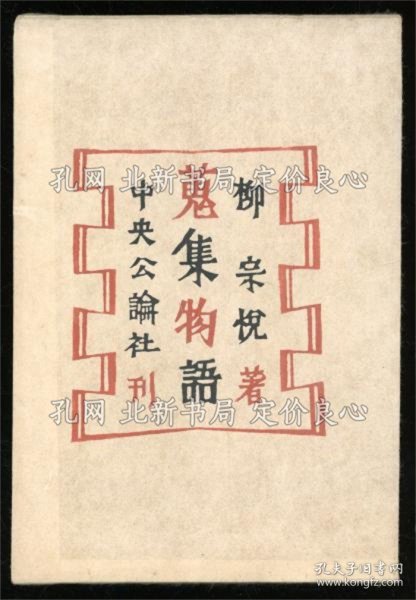 柳宗悦著
蒐集物語
中央公論社刊
孔网 北新书局 定价良心
孔网 北新书局 定价良心
孔网 北新书局 定价良心
孔夫子旧书网
www.kongfz.com